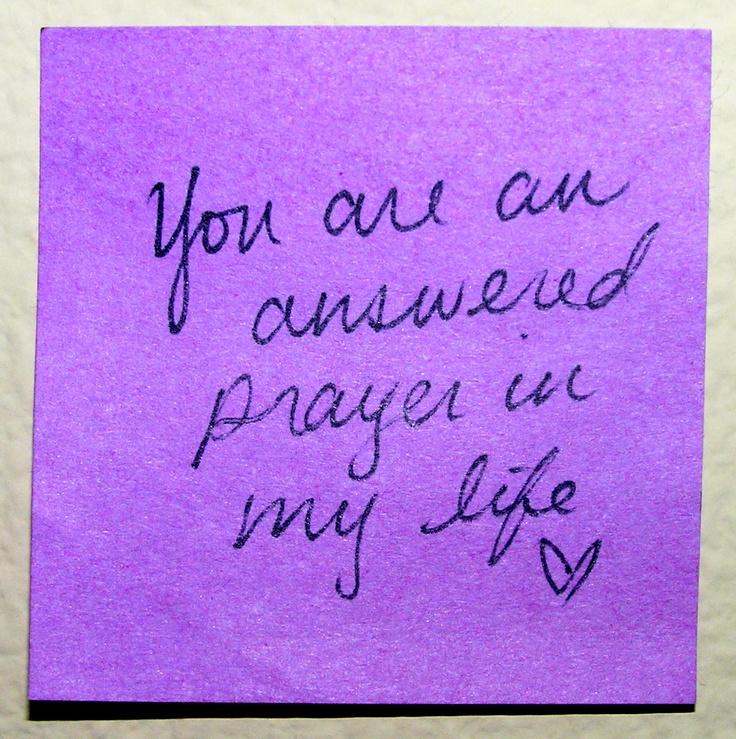 You are an
answered
prayer in
my life
♡